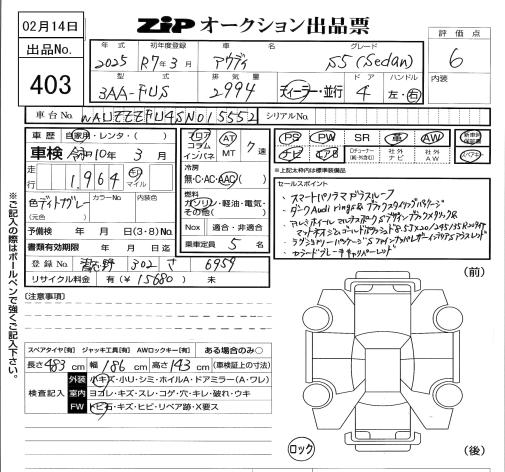 02月14日
ZiP オークション出品票
評価点
6
内装
出品No.
403
年式 初年度登録 車名 グレード
2025 R7年3月 アウディ S5 (Sedan)
型式 排気量 ドア ハンドル
3AA-FUS 2994 ディーラー・並行 4 左・右
車台No WAUZZZFU4SN015552 シリアルNo.
車歴 自家用・レンタ・( )
車検 令和10年3月
走行 1,964 キロ マイル
色 デイトナグレー
(元色)
カラーNo 内装色
予備検 年 月 日(3・8)No.
書類有効期限 年 月 日迄
登録No. 習志野 302 さ 6959
リサイクル料金 有(¥15680) 未
フロア コラム インパネ
AT 7速
MT
冷房
無・C・AC・AAC
燃料
ガソリン・軽油・電気・その他( )
Nox 適合・非適合
乗車定員 5名
PS PW SR 革 AW
ナビ エアB Dチューナー(純・外含む) 社外ナビ 社外AW
新車時保証書
スペアキー
※上記太枠内は標準装備品
セールスポイント
・スマートパノラマガラスルーフ
・ダークAudi rings&ブラックスタイリングパッケージ
・カラードブレーキキャリパーレッド
[注意事項]
スペアタイヤ[有] ジャッキ工具[有] AWロックキー[有] ある場合のみ○
長さ483cm 幅186cm 高さ143cm (車検証上の寸法)
検査記入
外装 小キズ・小U・シミ・ホイルA・ドアミラー(A・ワレ)
室内 ヨゴレ・キズ・スレ・コゲ・穴・キレ・破れ・ウキ
FW トビ石・キズ・ヒビ・リペア跡・X要ス
(前)
ロック
(後)
※ご記入の際はボールペンで強くご記入下さい。